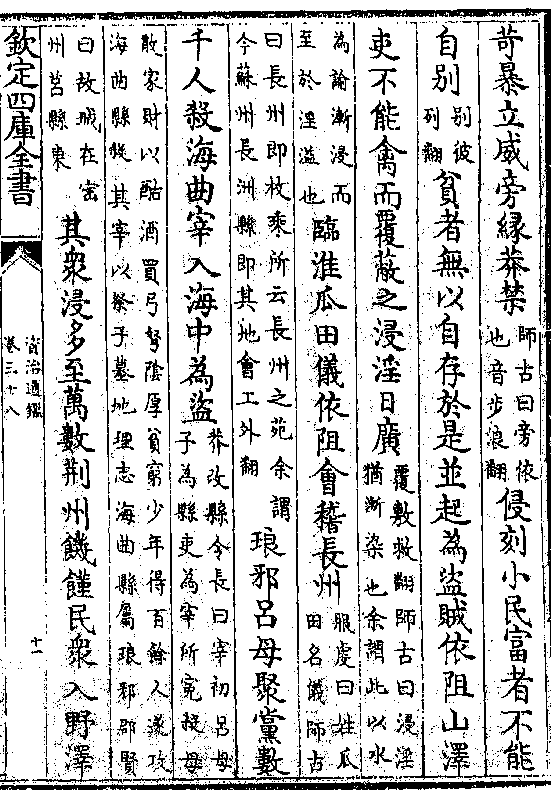 苛暴立威旁縁莽禁師古曰旁依也音步浪翻侵刻小民富者不能
自别别彼列翻貧者無以自存於是並起為盜賊依阻山澤
吏不能禽而覆蔽之浸淫日廣覆敷救翻師古曰浸淫猶漸染也余謂此以水
為諭漸浸而至於淫溢也臨淮瓜田儀依阻會稽長州服虔曰姓瓜田名儀師古
曰長州即枚乘所云長州之苑余謂今蘇州長洲縣即其地會工外翻琅邪呂母聚黨數
千人殺海曲宰入海中為盜莽改縣令長曰宰初呂母子為縣吏為宰所寃殺母
散家財以酤酒買弓弩陰厚貧窮少年得百餘人遂攻海曲縣殺其宰以祭子墓地理志海曲縣屬琅邪郡賢
曰故城在宻州莒縣東其衆浸多至萬數荆州饑饉民衆入野澤
欽定四庫全書
資治通鑑
卷三十八
十一